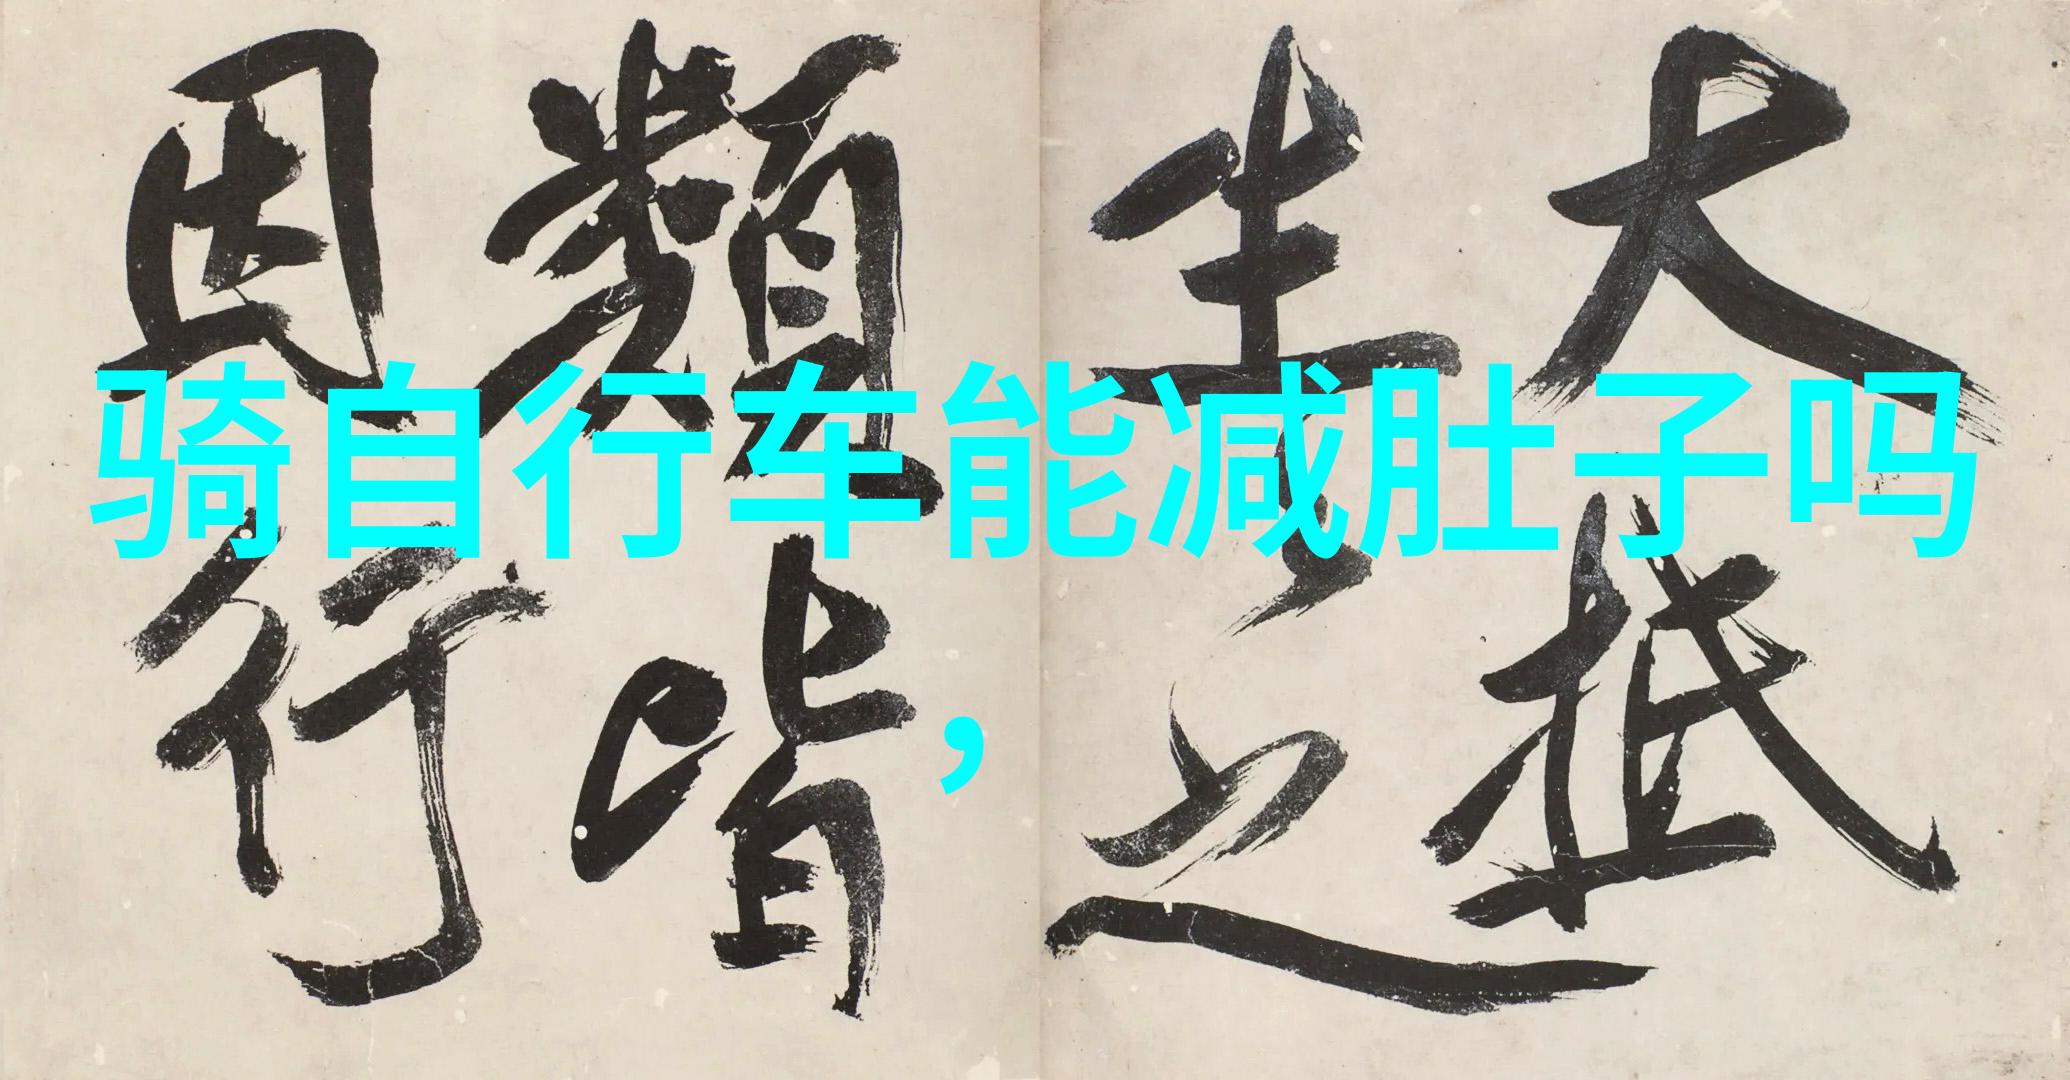 大抵
生之
類皆
因行
骑自行车能减肚子吗
，